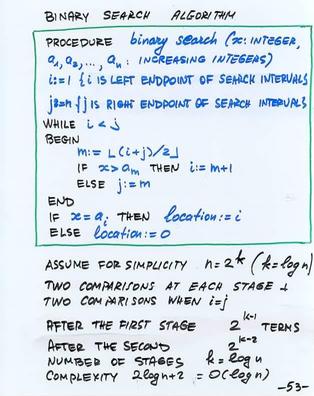 BINARY SEARCH ALGORITHM
PROCEDURE binary search (x: INTEGER,
a₁, a₂, ..., aₙ : INCREASING INTEGERS)
i:=1 {i IS LEFT ENDPOINT OF SEARCH INTERVAL}
j:=n {j IS RIGHT ENDPOINT OF SEARCH INTERVAL}
WHILE i < j
BEGIN
m:= ⌊(i+j)/2⌋
IF x>aₘ THEN i:= m+1
ELSE j:=m
END
IF x=aᵢ THEN location:= i
ELSE location:=0
ASSUME FOR SIMPLICITY n=2^k (k=log n)
TWO COMPARISONS AT EACH STAGE +
TWO COMPARISONS WHEN i=j
AFTER THE FIRST STAGE 2^k-1 TERMS
AFTER THE SECOND 2^k-2
NUMBER OF STAGES k=log n
COMPLEXITY 2log n+2 = O(log n)
-53-